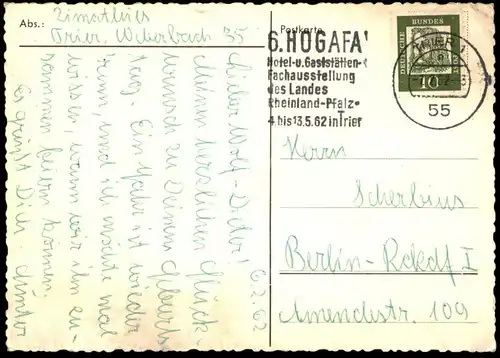 Abs.: Zimathies
Trier, Weberbach 35
6.2.62
Lieber Wolf-Dieter!
Meinen herzlichen Glück-
wunsch zu Deinem Geburts-
tag. Ein Jahr ist wieder
rum, und ich möchte mal
wissen, wann wir ihn zu-
sammen feiern können.
Es grüßt Dich Günter
Postkarte
6. HOGAFA
Hotel-u.Gaststätten-
Fachausstellung
des Landes
Rheinland-Pfalz
4. bis 13.5.62 in Trier
DEUTSCHE BUNDES
10
TRIER 1
55
Herrn
Scherbius
Berlin-Rckdf I
Amendestr. 109